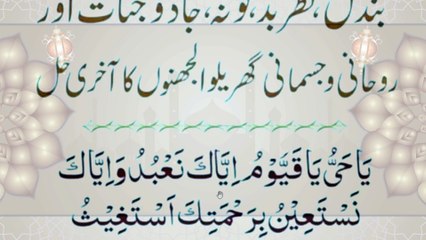 بندش، نظر بد، ٹونہ، جادو جنات اور
روحانی و جسمانی گھریلو الجھنوں کا آخری حل
يَا حَیُّ يَا قَيُّوْمُ اِيَّاكَ نَعْبُدُ وَاِيَّاكَ
نَسْتَعِيْنُ بِرَحْمَتِكَ اَسْتَغِيْثُ